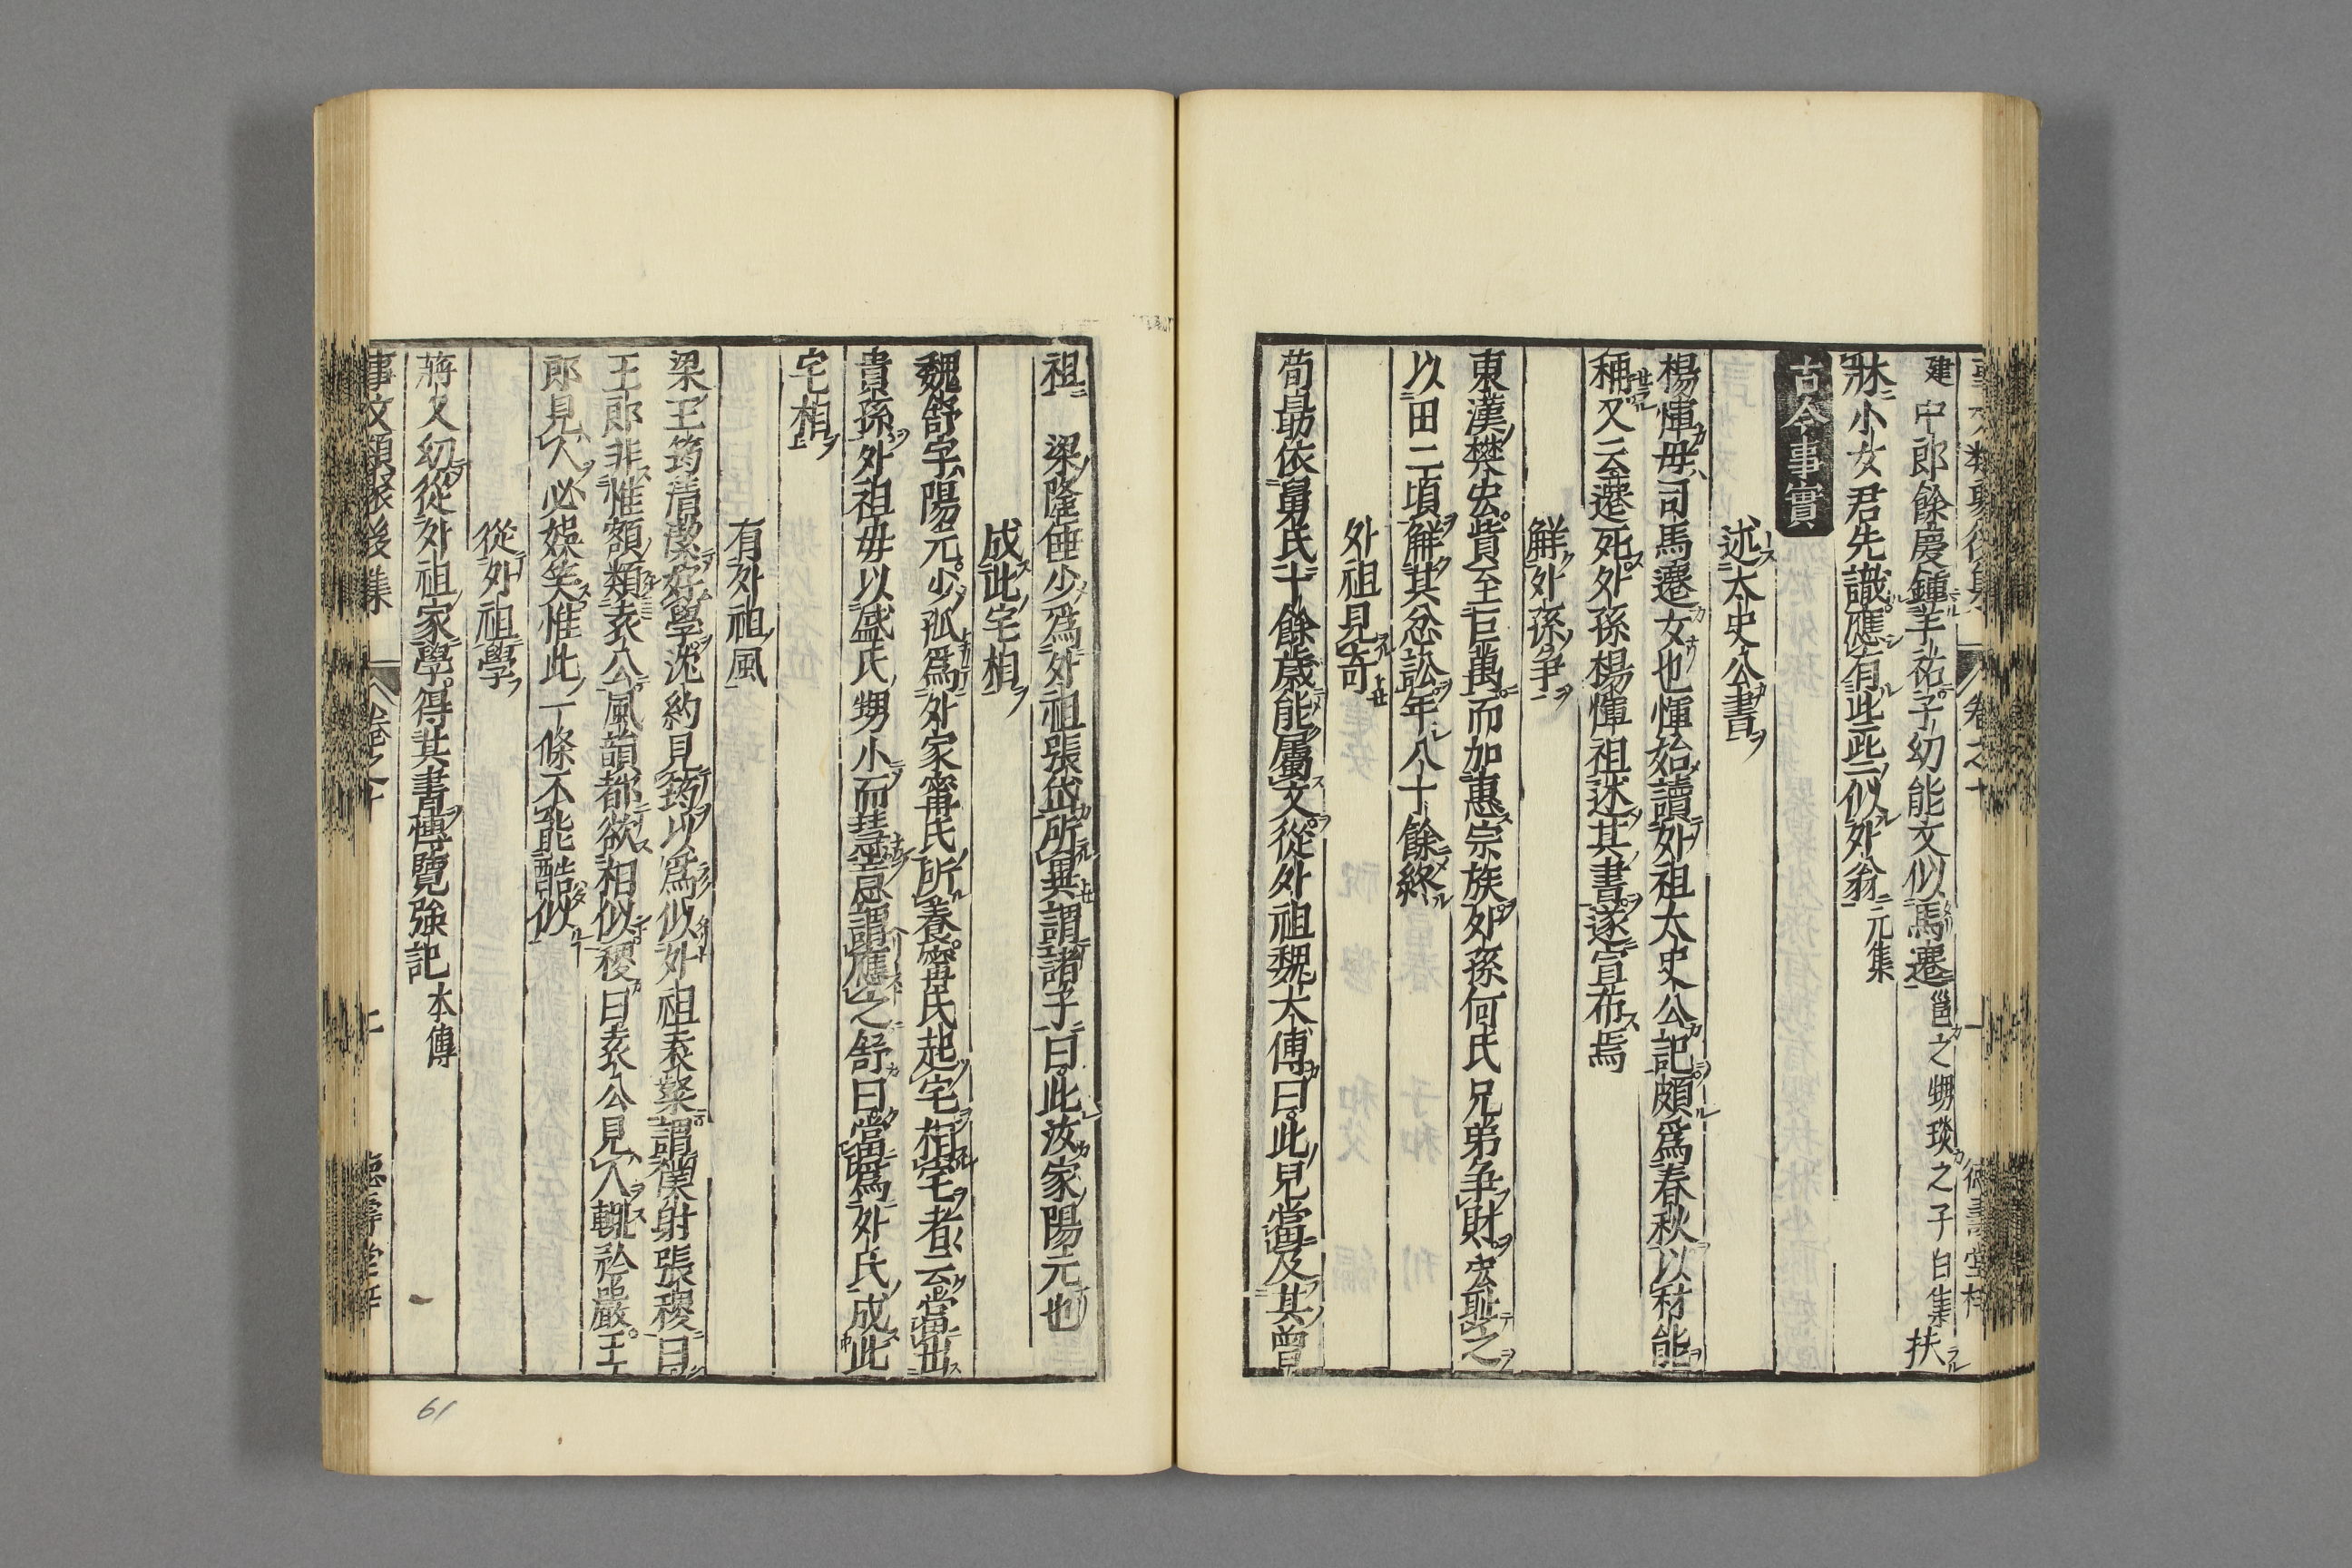 建中郎餘慶鍾羊祜子幼能文似馬遷邕之甥琰之子白集扶
牀小女君先識應有些些似外翁元集
古今事實
述太史公書
楊惲毋司馬遷女也惲始讀外祖太史公記頗爲春秋以材能
稱又云遷死外孫楊惲祖述其書遂宣布焉
解外孫爭
東漢樊宏貲至巨萬而加惠宗族外孫何氏兄弟爭財宏恥之
以田二頃解其忿訟年八十餘終
外祖見奇
荀勗依舅氏十餘歲能屬文從外祖魏太傅曰此兒當及其曾
祖 梁隆倕少爲外祖張岱所異謂諸子曰此汝家陽元也
成此宅相
魏舒字陽元少孤爲外家甯氏所養甯氏起宅相宅者云當出
貴孫外祖毋以盛氏甥小而慧意謂應之舒曰當爲外氏成此
宅相
有外祖風
梁王筠清潔好學沈約見筠以爲似外祖袁粲謂僕射張稷曰
王郎非惟額類袁公風韻都欲相似稷曰袁公見人輒矜嚴王
郎見人必娛笑惟此一條不能酷似
從外祖學
蔣乂幼從外祖家學得其書博覽強記本傳
事文類聚後集 卷之十
61